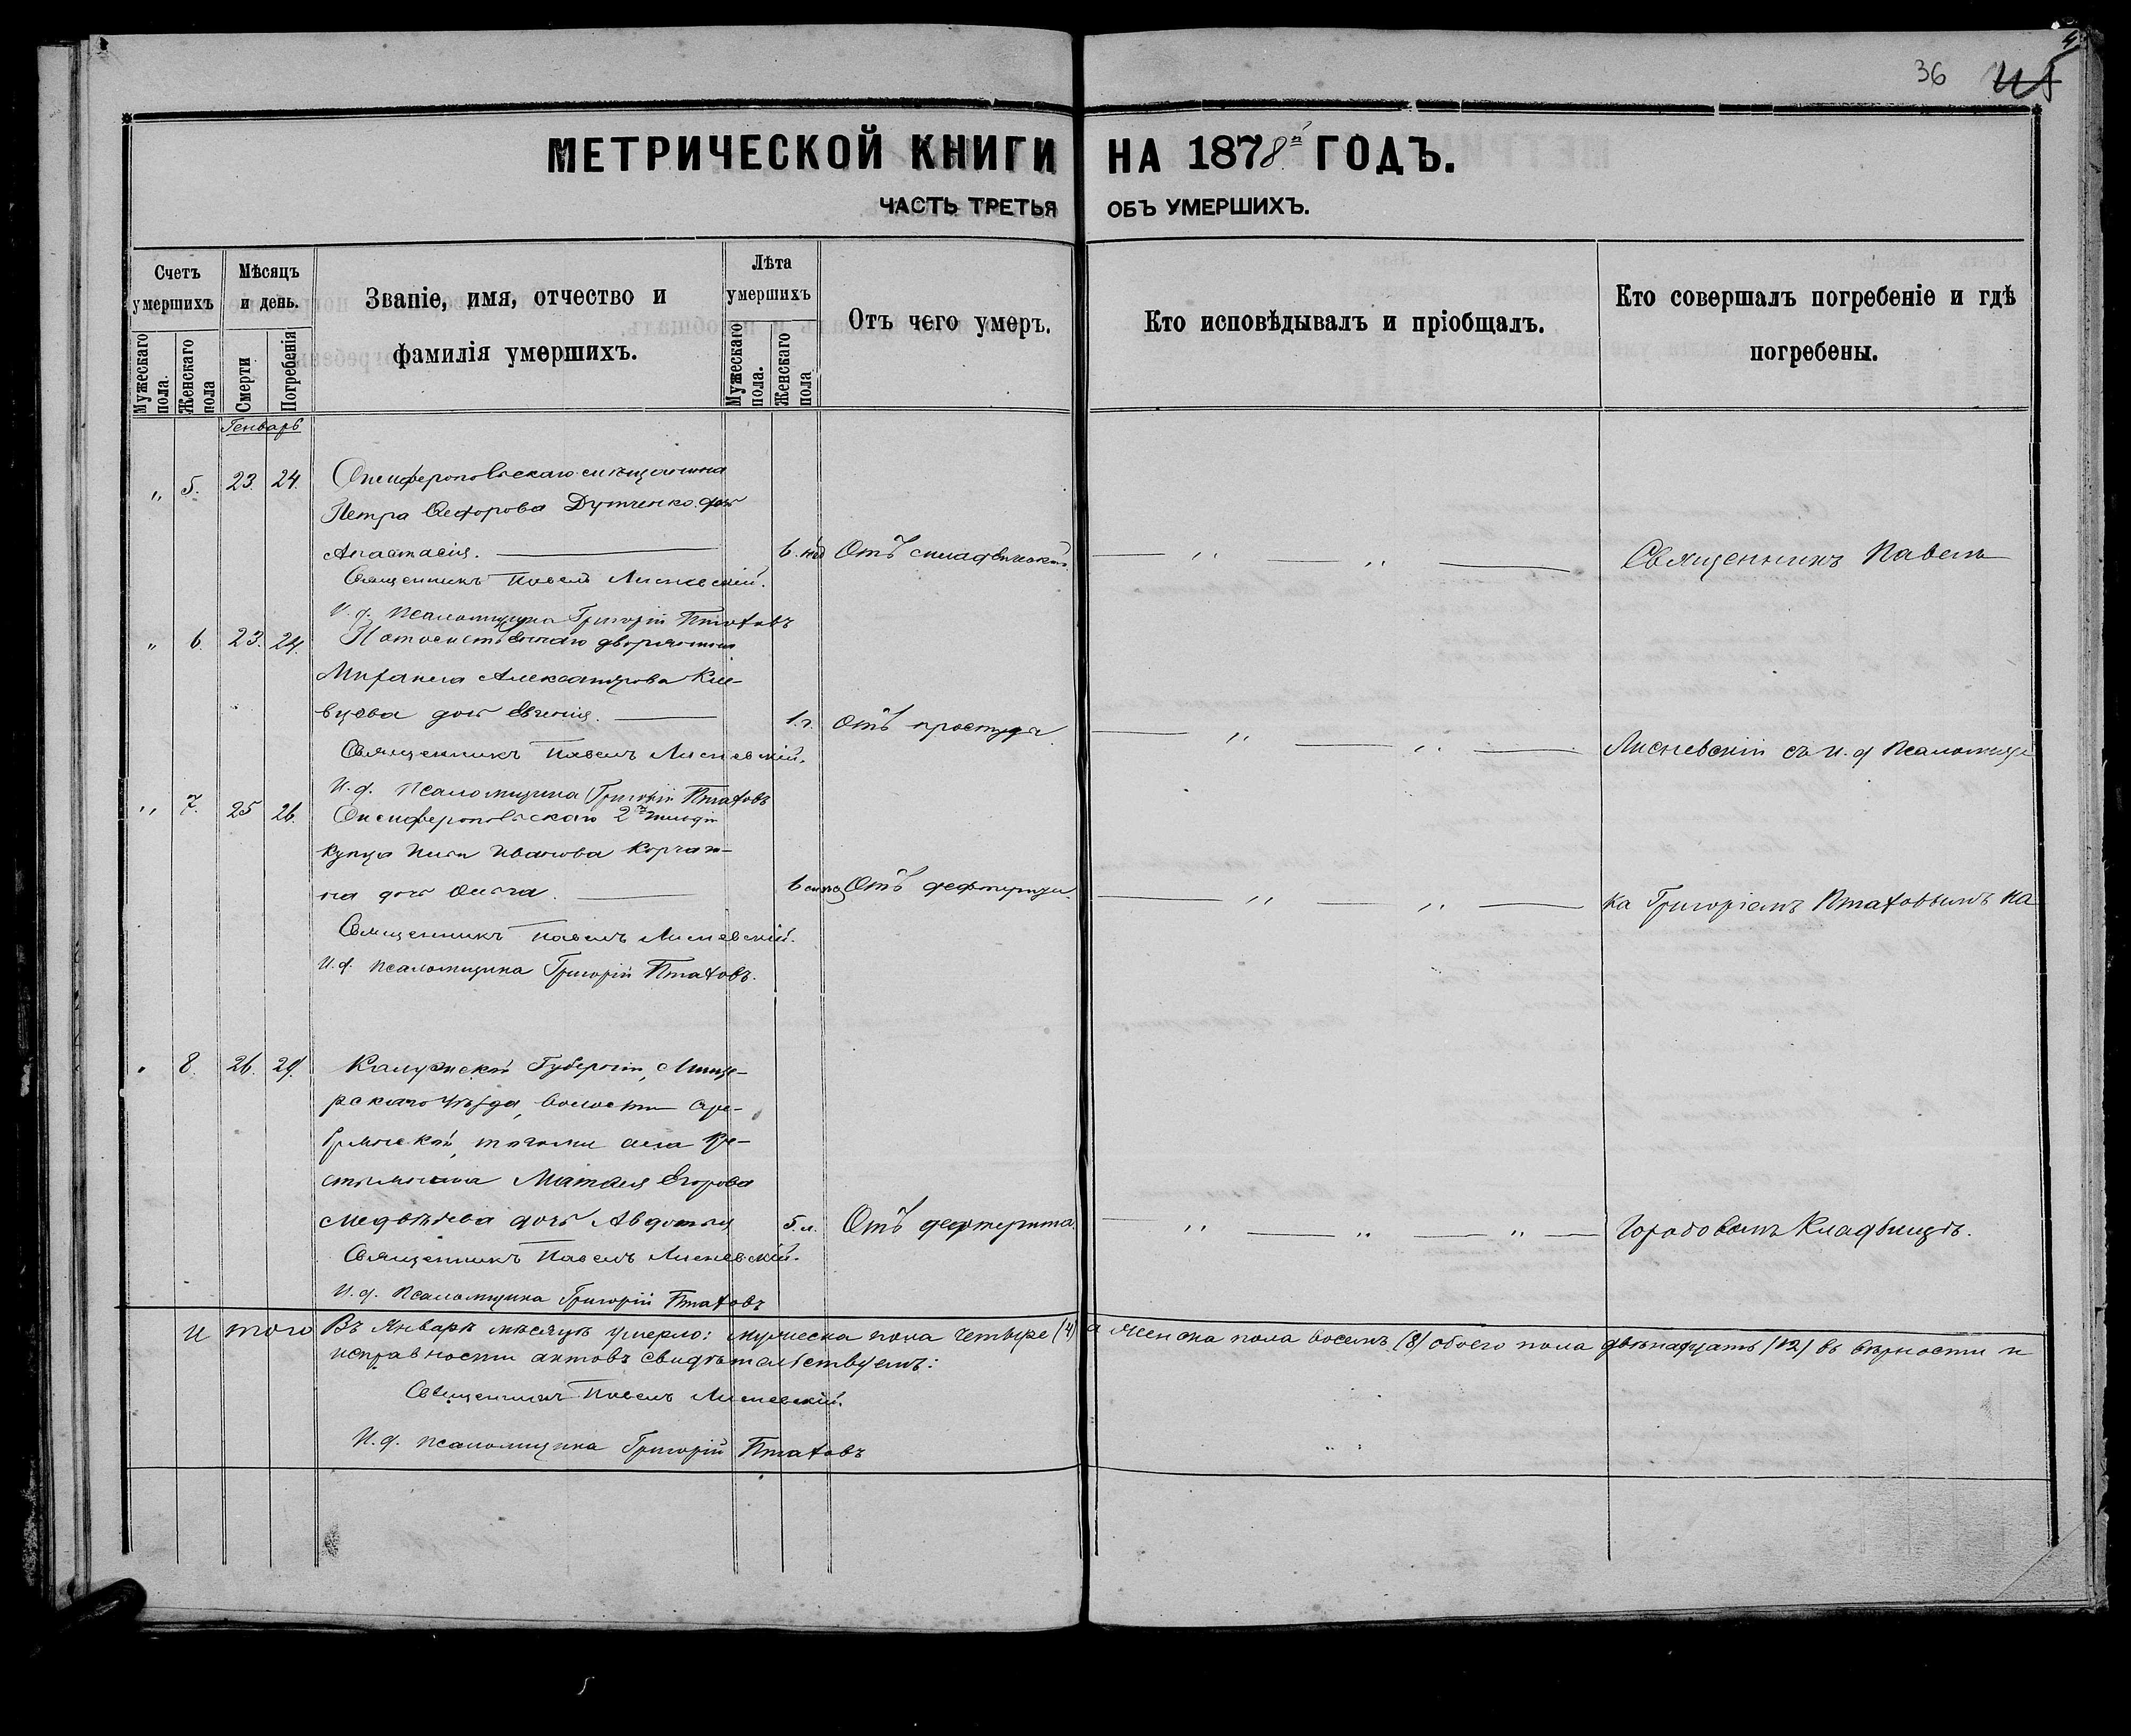 36
МЕТРИЧЕСКОЙ КНИГИ НА 1878й ГОДЪ.
ЧАСТЬ ТРЕТЬЯ ОБЪ УМЕРШИХЪ.
Счетъ умершихъ
Мѣсяцъ и день.
Званіе, имя, отчество и
фамилія умершихъ.
Лѣта умершихъ
Отъ чего умеръ.
Кто исповѣдывалъ и пріобщалъ.
Кто совершалъ погребеніе и гдѣ
погребены.
Мужескаго пола.
Женскаго пола
Смерти
Погребенія
Мужескаго пола.
Женскаго пола
Генварь
„ 5. 23. 24.
Петра Федорова дочь
Анастасія. 6. нед Отъ
Священникъ Павелъ Лисневскій.
И. д. Псаломщика Григорій Птаховъ
„ 6. 23. 24. Потомственнаго дворянина
Михаила Александрова
дочь Евгенія. 1. г. Отъ простуды
Священникъ Павелъ Лисневскій.
И. д. Псаломщика Григорій Птаховъ
„ 7. 25 26. 2й гильдіи
купца Иванова
на дочь Ольга. 6 Отъ
Священникъ Павелъ Лисневскій.
И. д. Псаломщика Григорій Птаховъ.
8. 26. 29. Калужской Губерніи,
рскаго Уѣзда, волости
села кре-
стьянина Матвея Егорова
Медвѣдева дочь Авдотья 5. л. Отъ дефтерита.
Священникъ Павелъ Лисневскій.
И. д. Псаломщика Григорій Птаховъ
Священникъ Павелъ
Лисневскій съ и. д Псаломщи
ка Григоріемъ Птаховымъ на
Городовомъ Кладбищѣ.
Итого Въ Январѣ мѣсяцѣ умерло: мужеска пола четыре (4) а женска пола восемь (8) обоего пола двѣнадцать (12) въ вѣрности и
исправности актовъ свидѣтельствуемъ:
Священникъ Павелъ Лисневскій.
И. д. псаломщика Григорій Птаховъ